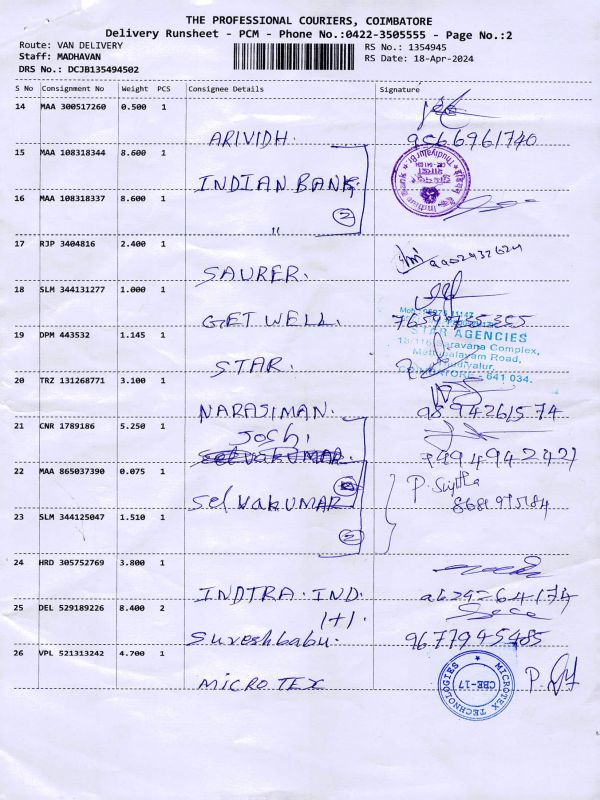 THE PROFESSIONAL COURIERS, COIMBATORE
Delivery Runsheet - PCM - Phone No.:0422-3505555 - Page No.:2
Route: VAN DELIVERY
RS No.: 1354945
Staff: MADHAVAN
RS Date: 18-Apr-2024
DRS No.: DCJB135494502
S No Consignment No Weight PCS Consignee Details Signature
14 MAA 300517260 0.500 1
ARIVIDH. 9566961740
15 MAA 108318344 8.600 1
INDIAN BANK,
16 MAA 108318337 8.600 1
2
"
17 RJP 3404816 2.400 1
SAURER.
18 SLM 344131277 1.000 1
GET WELL.
19 DPM 443532 1.145 1
STAR AGENCIES
Mettupalayam Road,
COIMBATORE - 641 034.
STAR.
20 TRZ 131268771 3.100 1
NARASIMAN. 9894261574
21 CNR 1789186 5.250 1
Joshi,
selvakumar.
22 MAA 865037390 0.075 1
selvakumar
23 SLM 344125047 1.510 1
2
24 HRD 305752769 3.800 1
INDTRA. IND.
25 DEL 529189226 8.400 2
1+1.
Sureshbabu. 9677945485
26 VPL 521313242 4.700 1
MICROTEX
MICROTEX TECHNOLOGIES
CBE-17